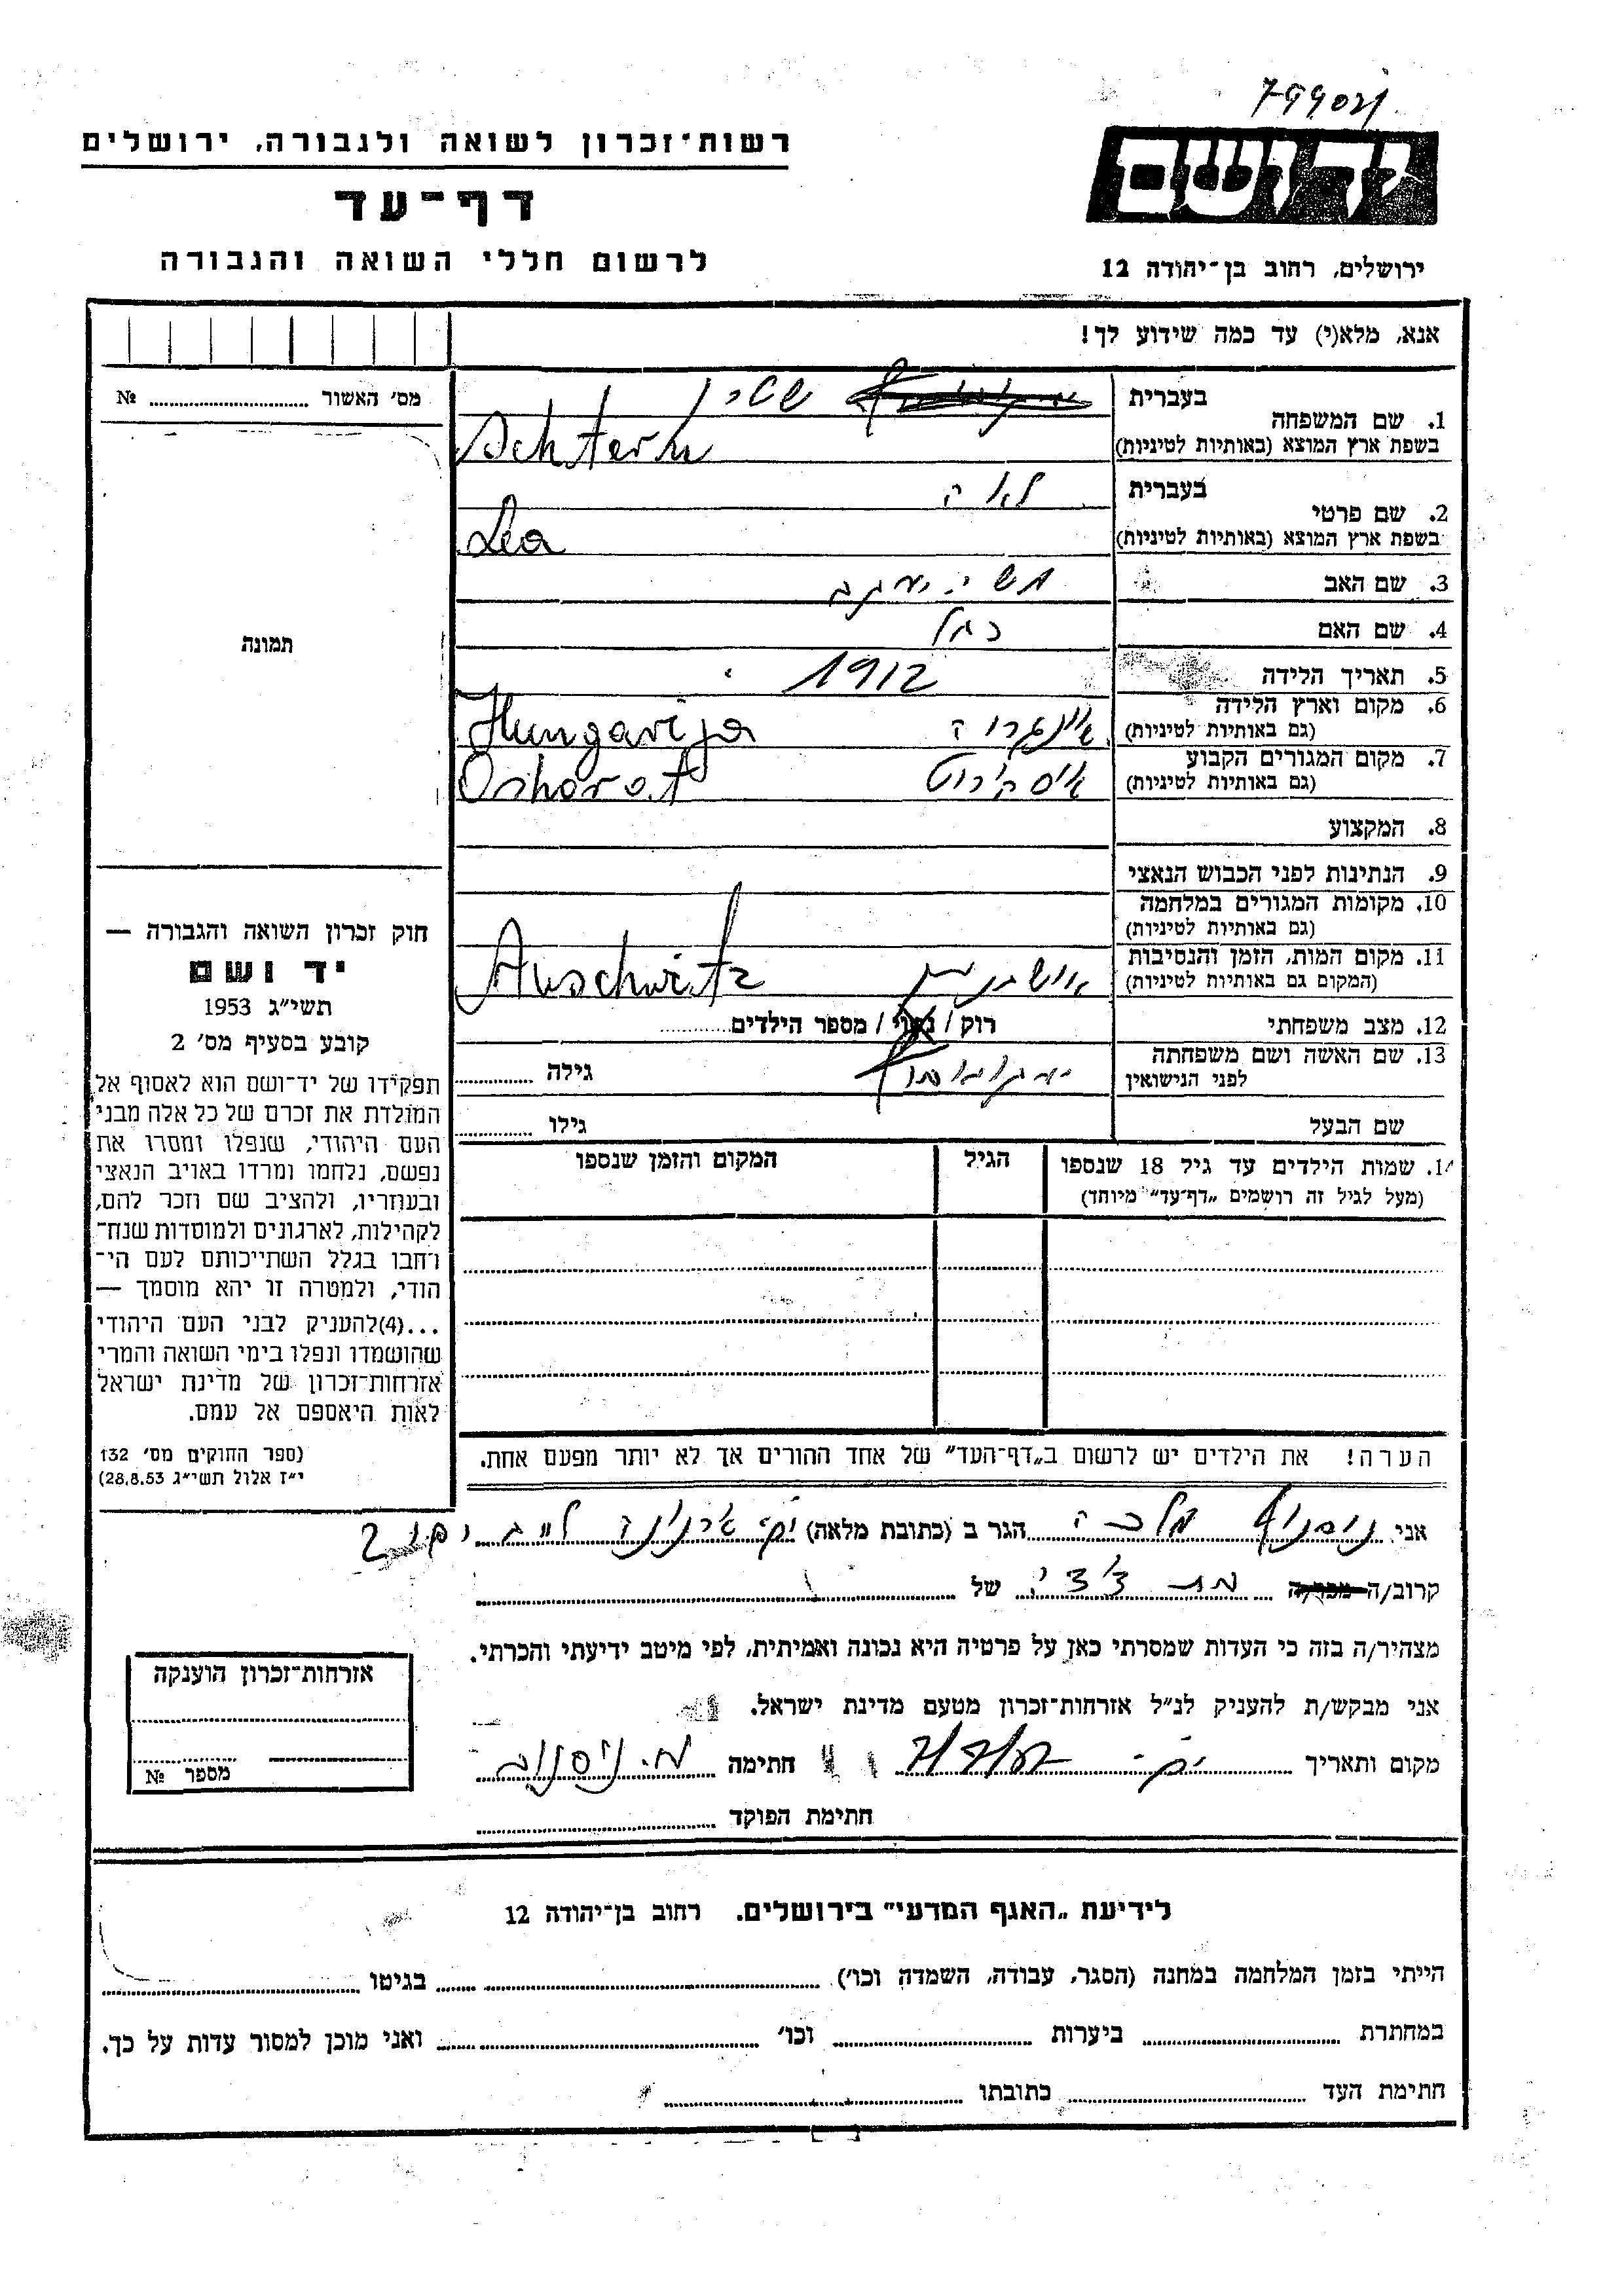 799021
רשות־זכרון לשואה ולגבורה, ירושלים
דף־עד
לרשום חללי השואה והגבורה
ידושם
ירושלים, רחוב בן־יהודה 12
אנא, מלא(י) עד כמה שידוע לך!
מס׳ האשור ........ №
תמונה
חוק זכרון השואה והגבורה —
יד ושם
תשי״ג 1953
קובע בסעיף מס׳ 2
תפקידו של יד־ושם הוא לאסוף אל
המולדת את זכרם של כל אלה מבני
העם היהודי, שנפלו ומסרו את
נפשם, נלחמו ומרדו באויב הנאצי
ובעוזריו, ולהציב שם וזכר להם,
לקהילות, לארגונים ולמוסדות שנח־
רחבו בגלל השתייכותם לעם הי־
הודי, ולמטרה זו יהא מוסמך —
...(4)להעניק לבני העם היהודי
שהושמדו ונפלו בימי השואה והמרי
אזרחות־זכרון של מדינת ישראל
לאות היאספם אל עמם.
(ספר החוקים מס׳ 132
י״ז אלול תשי״ג 28.8.53)
1. שם המשפחה
בעברית
בשפת ארץ המוצא (באותיות לטיניות) Schtern
2. שם פרטי
בעברית לאה
בשפת ארץ המוצא (באותיות לטיניות) Lea
3. שם האב
4. שם האם
5. תאריך הלידה 1912
6. מקום וארץ הלידה
(גם באותיות לטיניות) Hungarija
7. מקום המגורים הקבוע
(גם באותיות לטיניות)
8. המקצוע
9. הנתינות לפני הכבוש הנאצי
10. מקומות המגורים במלחמה
(גם באותיות לטיניות)
11. מקום המות, הזמן והנסיבות
(המקום גם באותיות לטיניות) Auschwitz
12. מצב משפחתי רוק / נשוי / מספר הילדים
13. שם האשה ושם משפחתה
לפני הנישואין גילה
שם הבעל גילו
14. שמות הילדים עד גיל 18 שנספו הגיל המקום והזמן שנספו
(מעל לגיל זה רושמים „דף־עד״ מיוחד)
הערה! את הילדים יש לרשום ב„דף־העד״ של אחד ההורים אך לא יותר מפעם אחת.
אני מלכה הגר ב (כתובת מלאה)
קרוב/ה מכר/ה של
מצהיר/ה בזה כי העדות שמסרתי כאן על פרטיה היא נכונה ואמיתית, לפי מיטב ידיעתי והכרתי.
אני מבקש/ת להעניק לנ״ל אזרחות־זכרון מטעם מדינת ישראל.
מקום ותאריך חתימה
חתימת הפוקד
אזרחות־זכרון הוענקה
מספר №
לידיעת „האגף המדעי״ בירושלים. רחוב בן־יהודה 12
הייתי בזמן המלחמה במחנה (הסגר, עבודה, השמדה וכו׳) בגיטו
במחתרת ביערות וכו׳ ואני מוכן למסור עדות על כך.
חתימת העד כתובתו